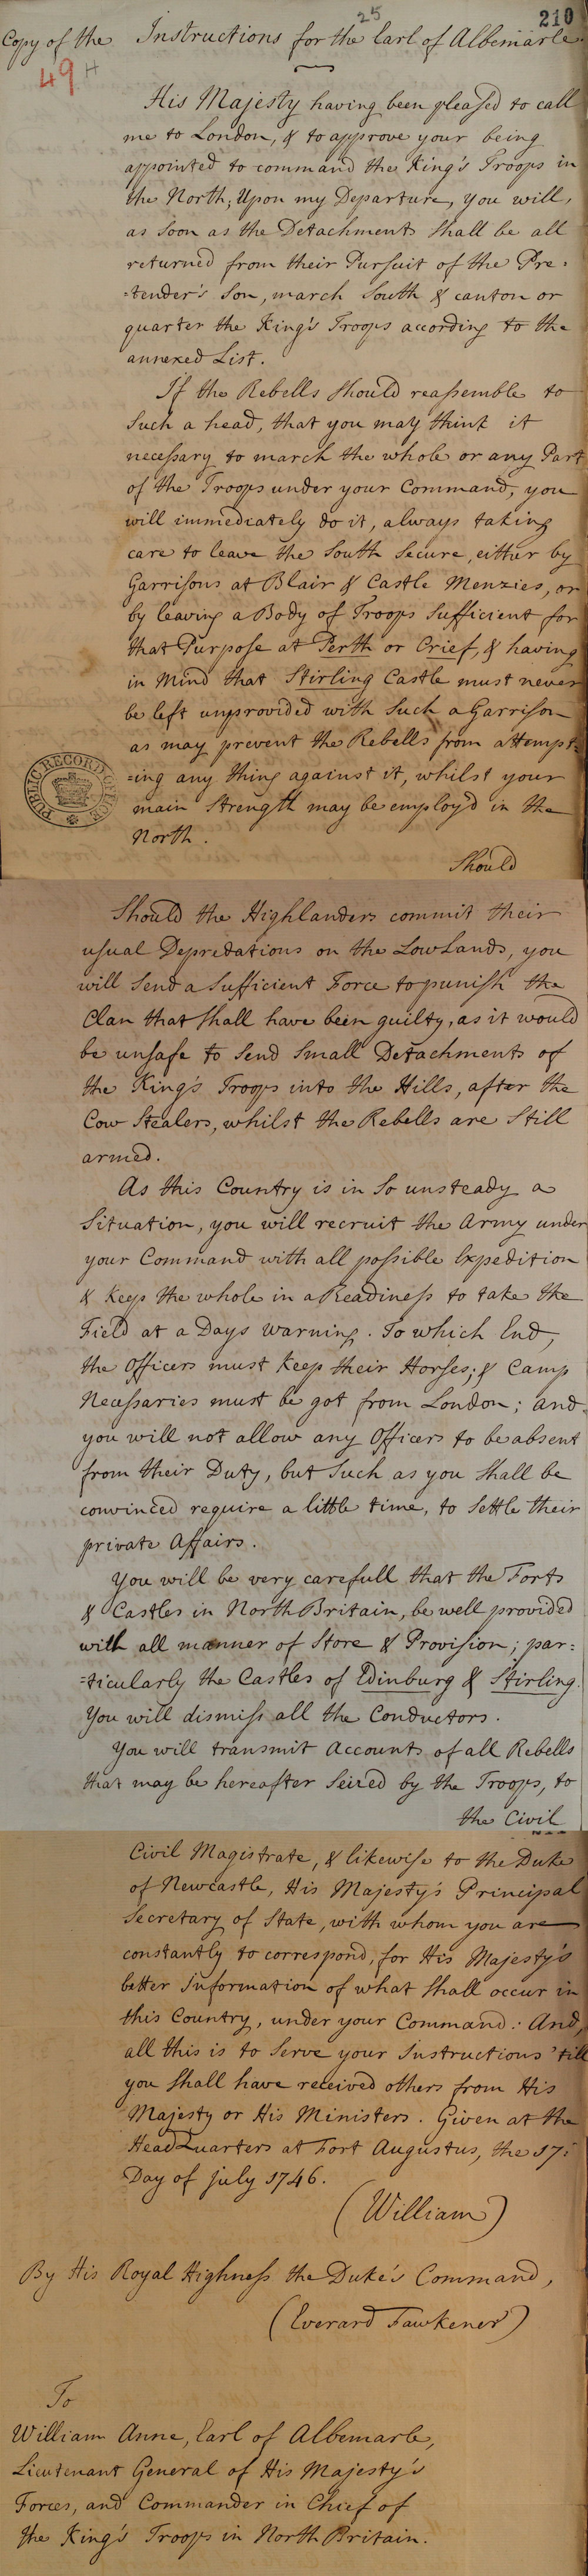 25
210
Copy of the Instructions for the Earl of Albemarle.
49 H
His Majesty having been pleased to call
me to London, & to approve your being
appointed to command the King's Troops in
the North; Upon my Departure, you will,
as soon as the Detachments shall be all
returned from their Pursuit of the Pre=
=tender's Son, march South & canton or
quarter the King's Troops according to the
annexed List.
If the Rebells should reassemble to
such a head, that you may think it
necessary to march the whole or any Part
of the Troops under your Command, you
will immediately do it, always taking
care to leave the South secure, either by
Garrisons at Blair & Castle Menzies, or
by leaving a Body of Troops sufficient for
that Purpose at Perth or Crief, & having
in Mind that Stirling Castle must never
be left unprovided with such a Garrison
as may prevent the Rebells from attempt=
=ing any thing against it, whilst your
main Strength may be employ'd in the
North.
PUBLIC RECORD OFFICE
Should
Should the Highlanders commit their
usual Depredations on the LowLands, you
will send a sufficient Force to punish the
Clan that shall have been guilty, as it would
be unsafe to send small Detachments of
the King's Troops into the Hills, after the
Cow Stealers, whilst the Rebells are still
armed.
As this Country is in so unsteady a
Situation, you will recruit the Army under
your Command with all possible Expedition
& keep the whole in a Readiness to take the
Field at a Days warning. To which End,
the Officers must keep their Horses; & Camp
Necessaries must be got from London; and
you will not allow any Officers to be absent
from their Duty, but such as you shall be
convinced require a little time, to settle their
private Affairs.
You will be very carefull that the Forts
& Castles in North Britain, be well provided
with all manner of Store & Provision; par=
=ticularly the Castles of Edinburg & Stirling.
You will dismiss all the Conductors.
You will transmit Accounts of all Rebells
that may be hereafter seized by the Troops, to
the Civil
Civil Magistrate, & likewise to the Duke
of Newcastle, His Majesty's Principal
Secretary of State, with whom you are
constantly to correspond, for His Majesty's
better Information of what shall occur in
this Country, under your Command. And,
all this is to serve your Instructions 'till
you shall have received others from His
Majesty or His Ministers. Given at the
HeadQuarters at Fort Augustus, the 17:
Day of July 1746.
(William)
By His Royal Highness the Duke's Command,
(Everard Fawkener)
To
William Anne, Earl of Albemarle,
Lieutenant General of His Majesty's
Forces, and Commander in Chief of
the King's Troops in North Britain.